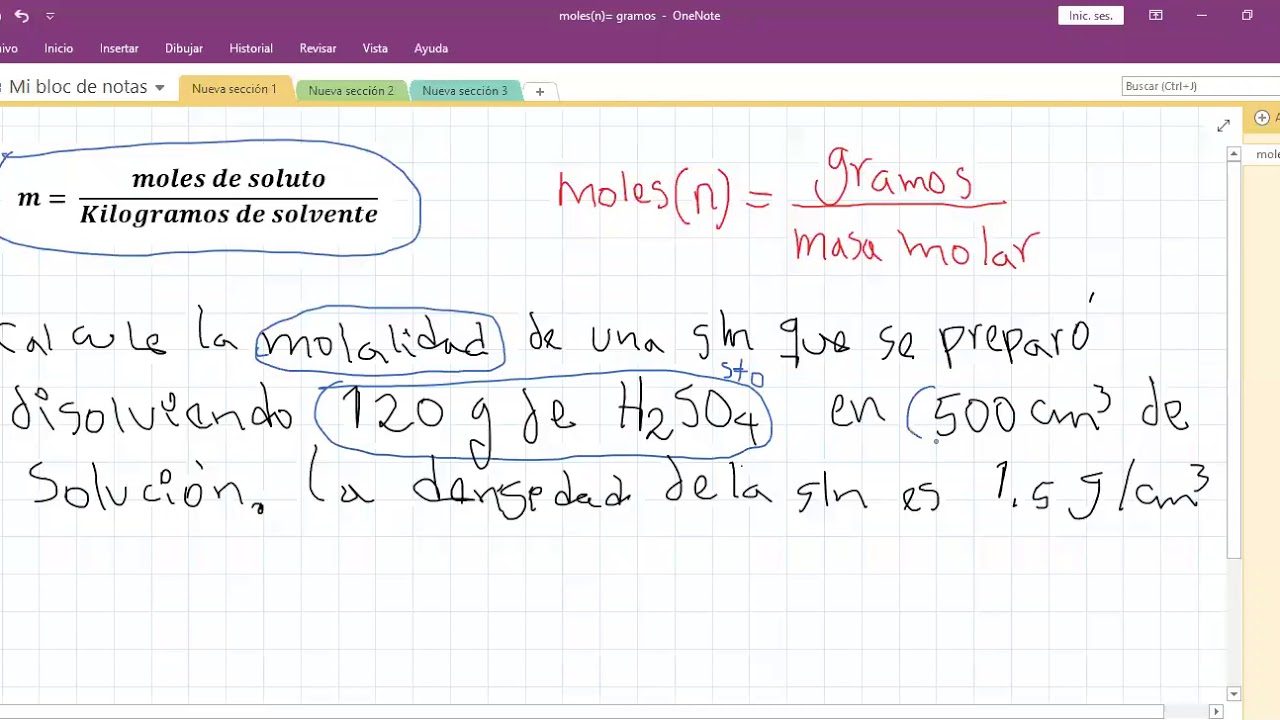 moles(n)= gramos - OneNote
Inic. ses.
ivo Inicio Insertar Dibujar Historial Revisar Vista Ayuda
Mi bloc de notas
Nueva sección 1
Nueva sección 2
Nueva sección 3
Buscar (Ctrl+J)
A
mole
m = moles de soluto
Kilogramos de solvente
moles(n) = gramos
masa molar
Calcule la molalidad de una sln que se preparó
sto
disolviendo 120 g de H₂SO₄ en (500 cm³ de
Solución. La densedad de la sln es 1.5 g/cm³